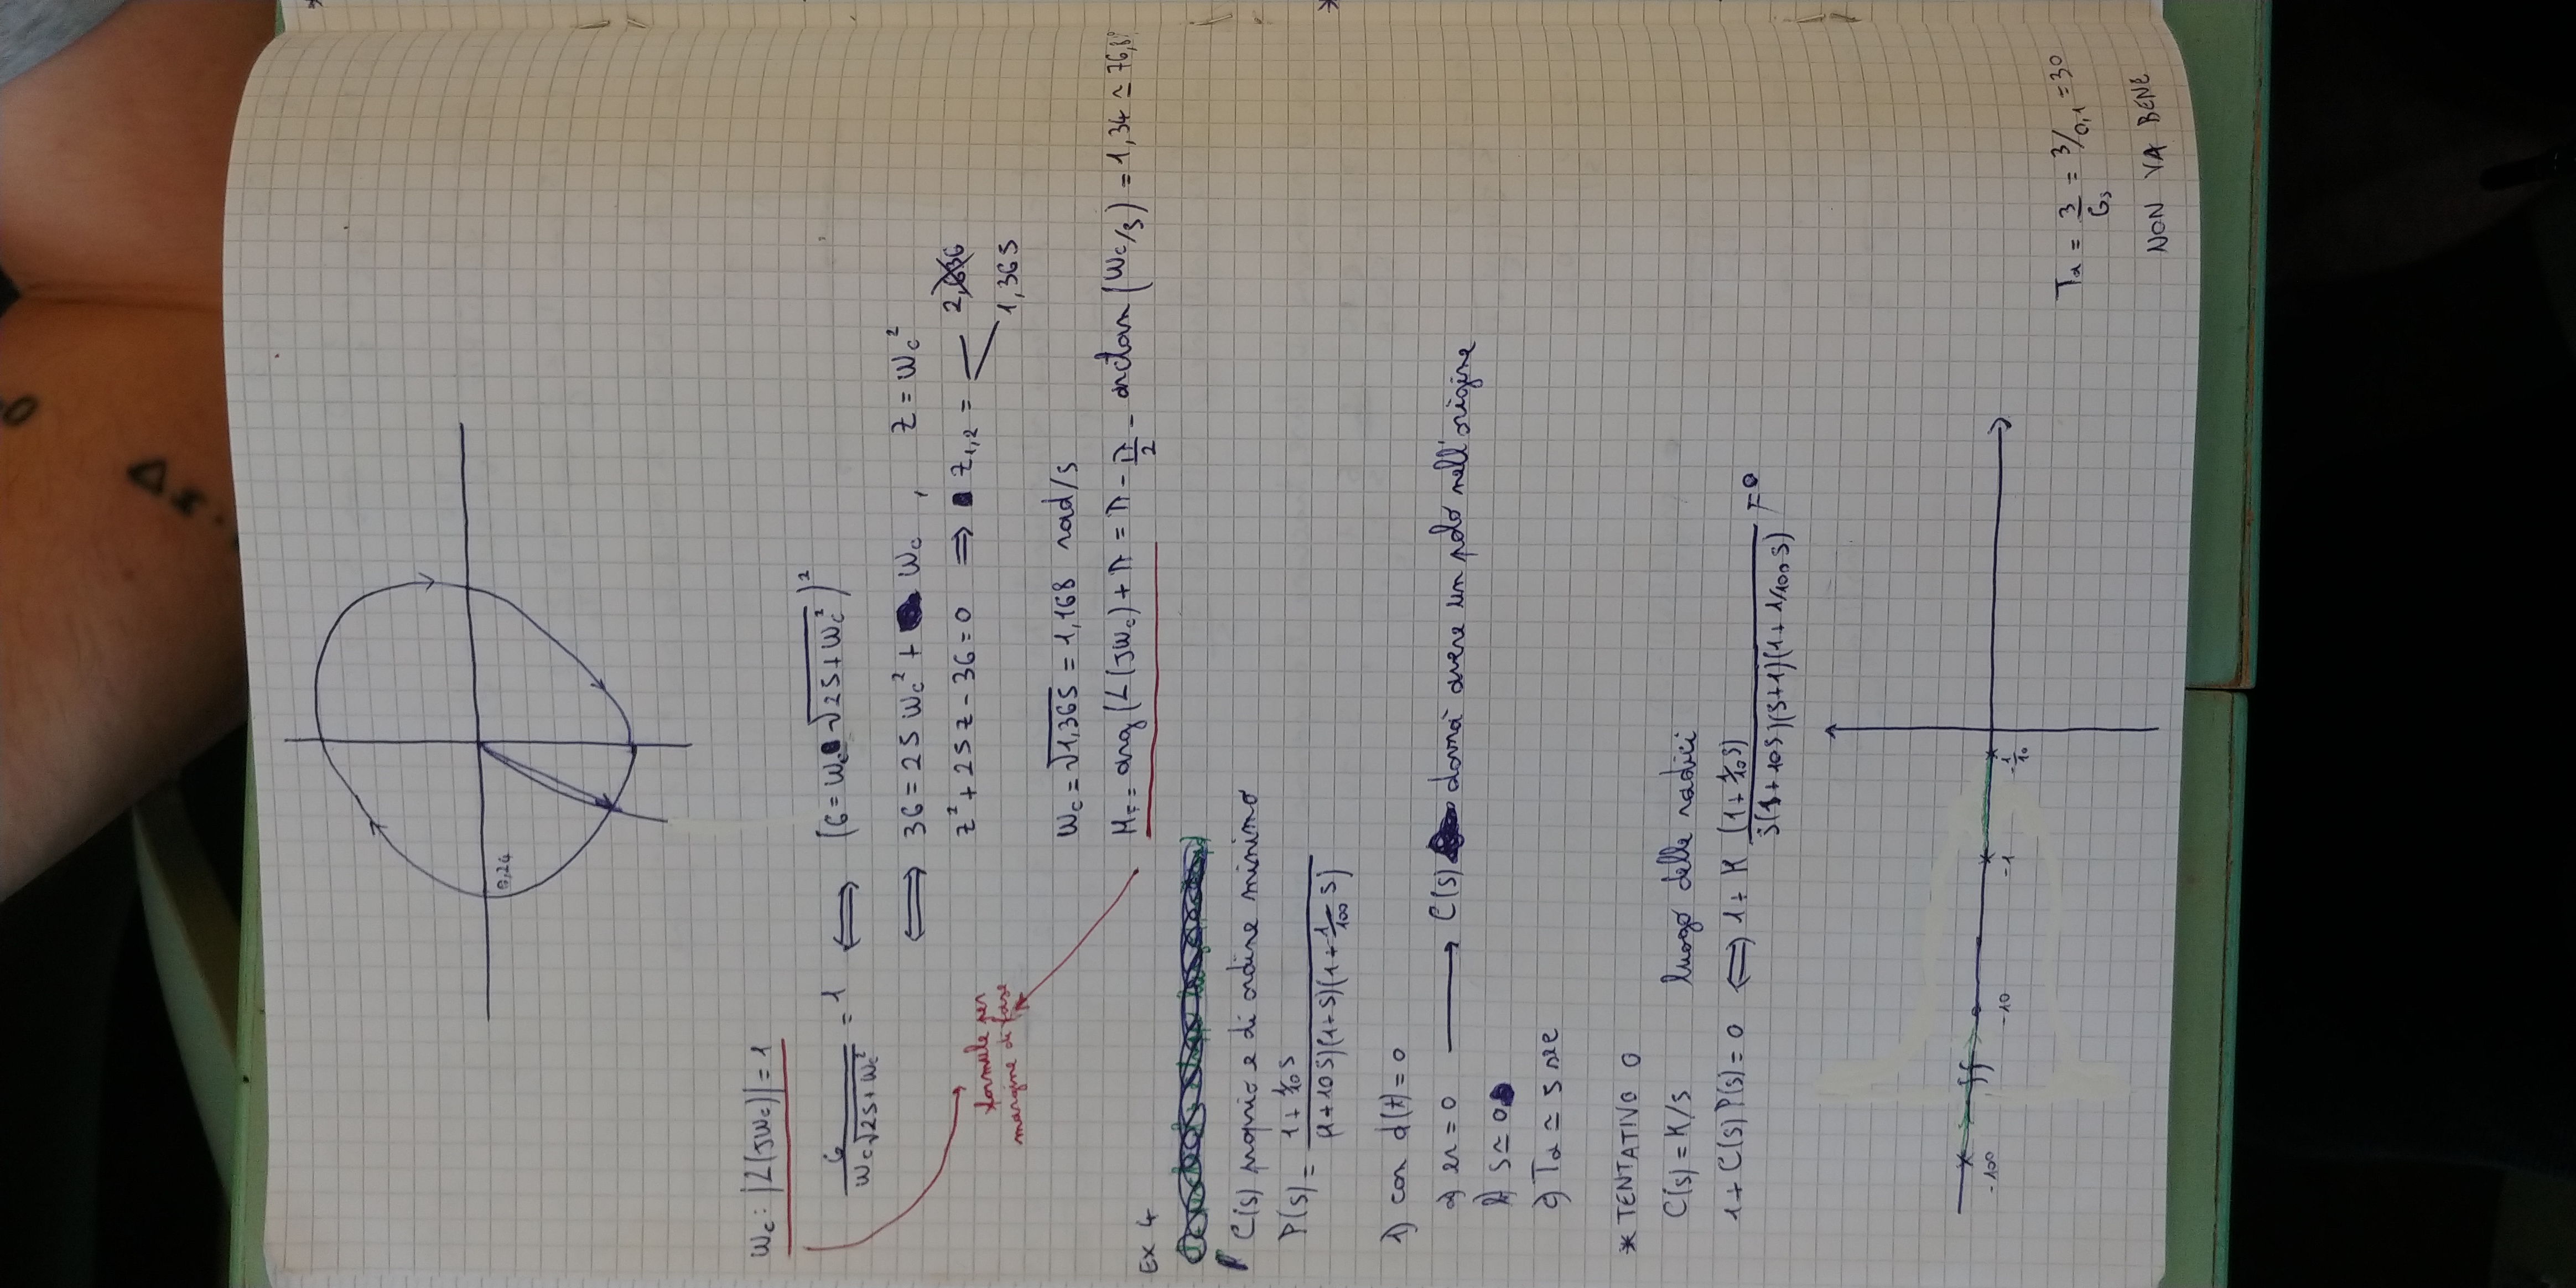 0,24
ωc: |L(Jωc)| = 1
6/(ωc√(25+ωc²)) = 1 ⟺ (6 = ωc √(25+ωc²))²
⟺ 36 = 25 ωc² + ωc , z = ωc²
z² + 25z - 36 = 0 ⟹ z1,2 =
1,365
formule per
margine di fase
ωc = √1,365 = 1,168 rad/s
MF = arg (L(Jωc) + π = π - π/2 - arctan (ωc/5) = 1,34 ≃ 76,8°
EX 4
C(s) proprio e di ordine minimo
P(s) = (1 + 1/10 s)/((1+10s)(1+s)(1+1/100 s))
1) con d(t) = 0
a) er = 0 → C(s) dovrà avere un polo nell'origine
b) s ≃ 0
c) Ta ≃ 5 sec
* TENTATIVO 0
C(s) = K/s luogo delle radici
1 + C(s) P(s) = 0 ⟺ 1 + K (1 + 1/10 s)/(s(1+10s)(s+1)(1+1/100 s)) = 0
-100 -10 -1 -1/10
Ta = 3/Gs = 3/0,1 = 30
NON VA BENE